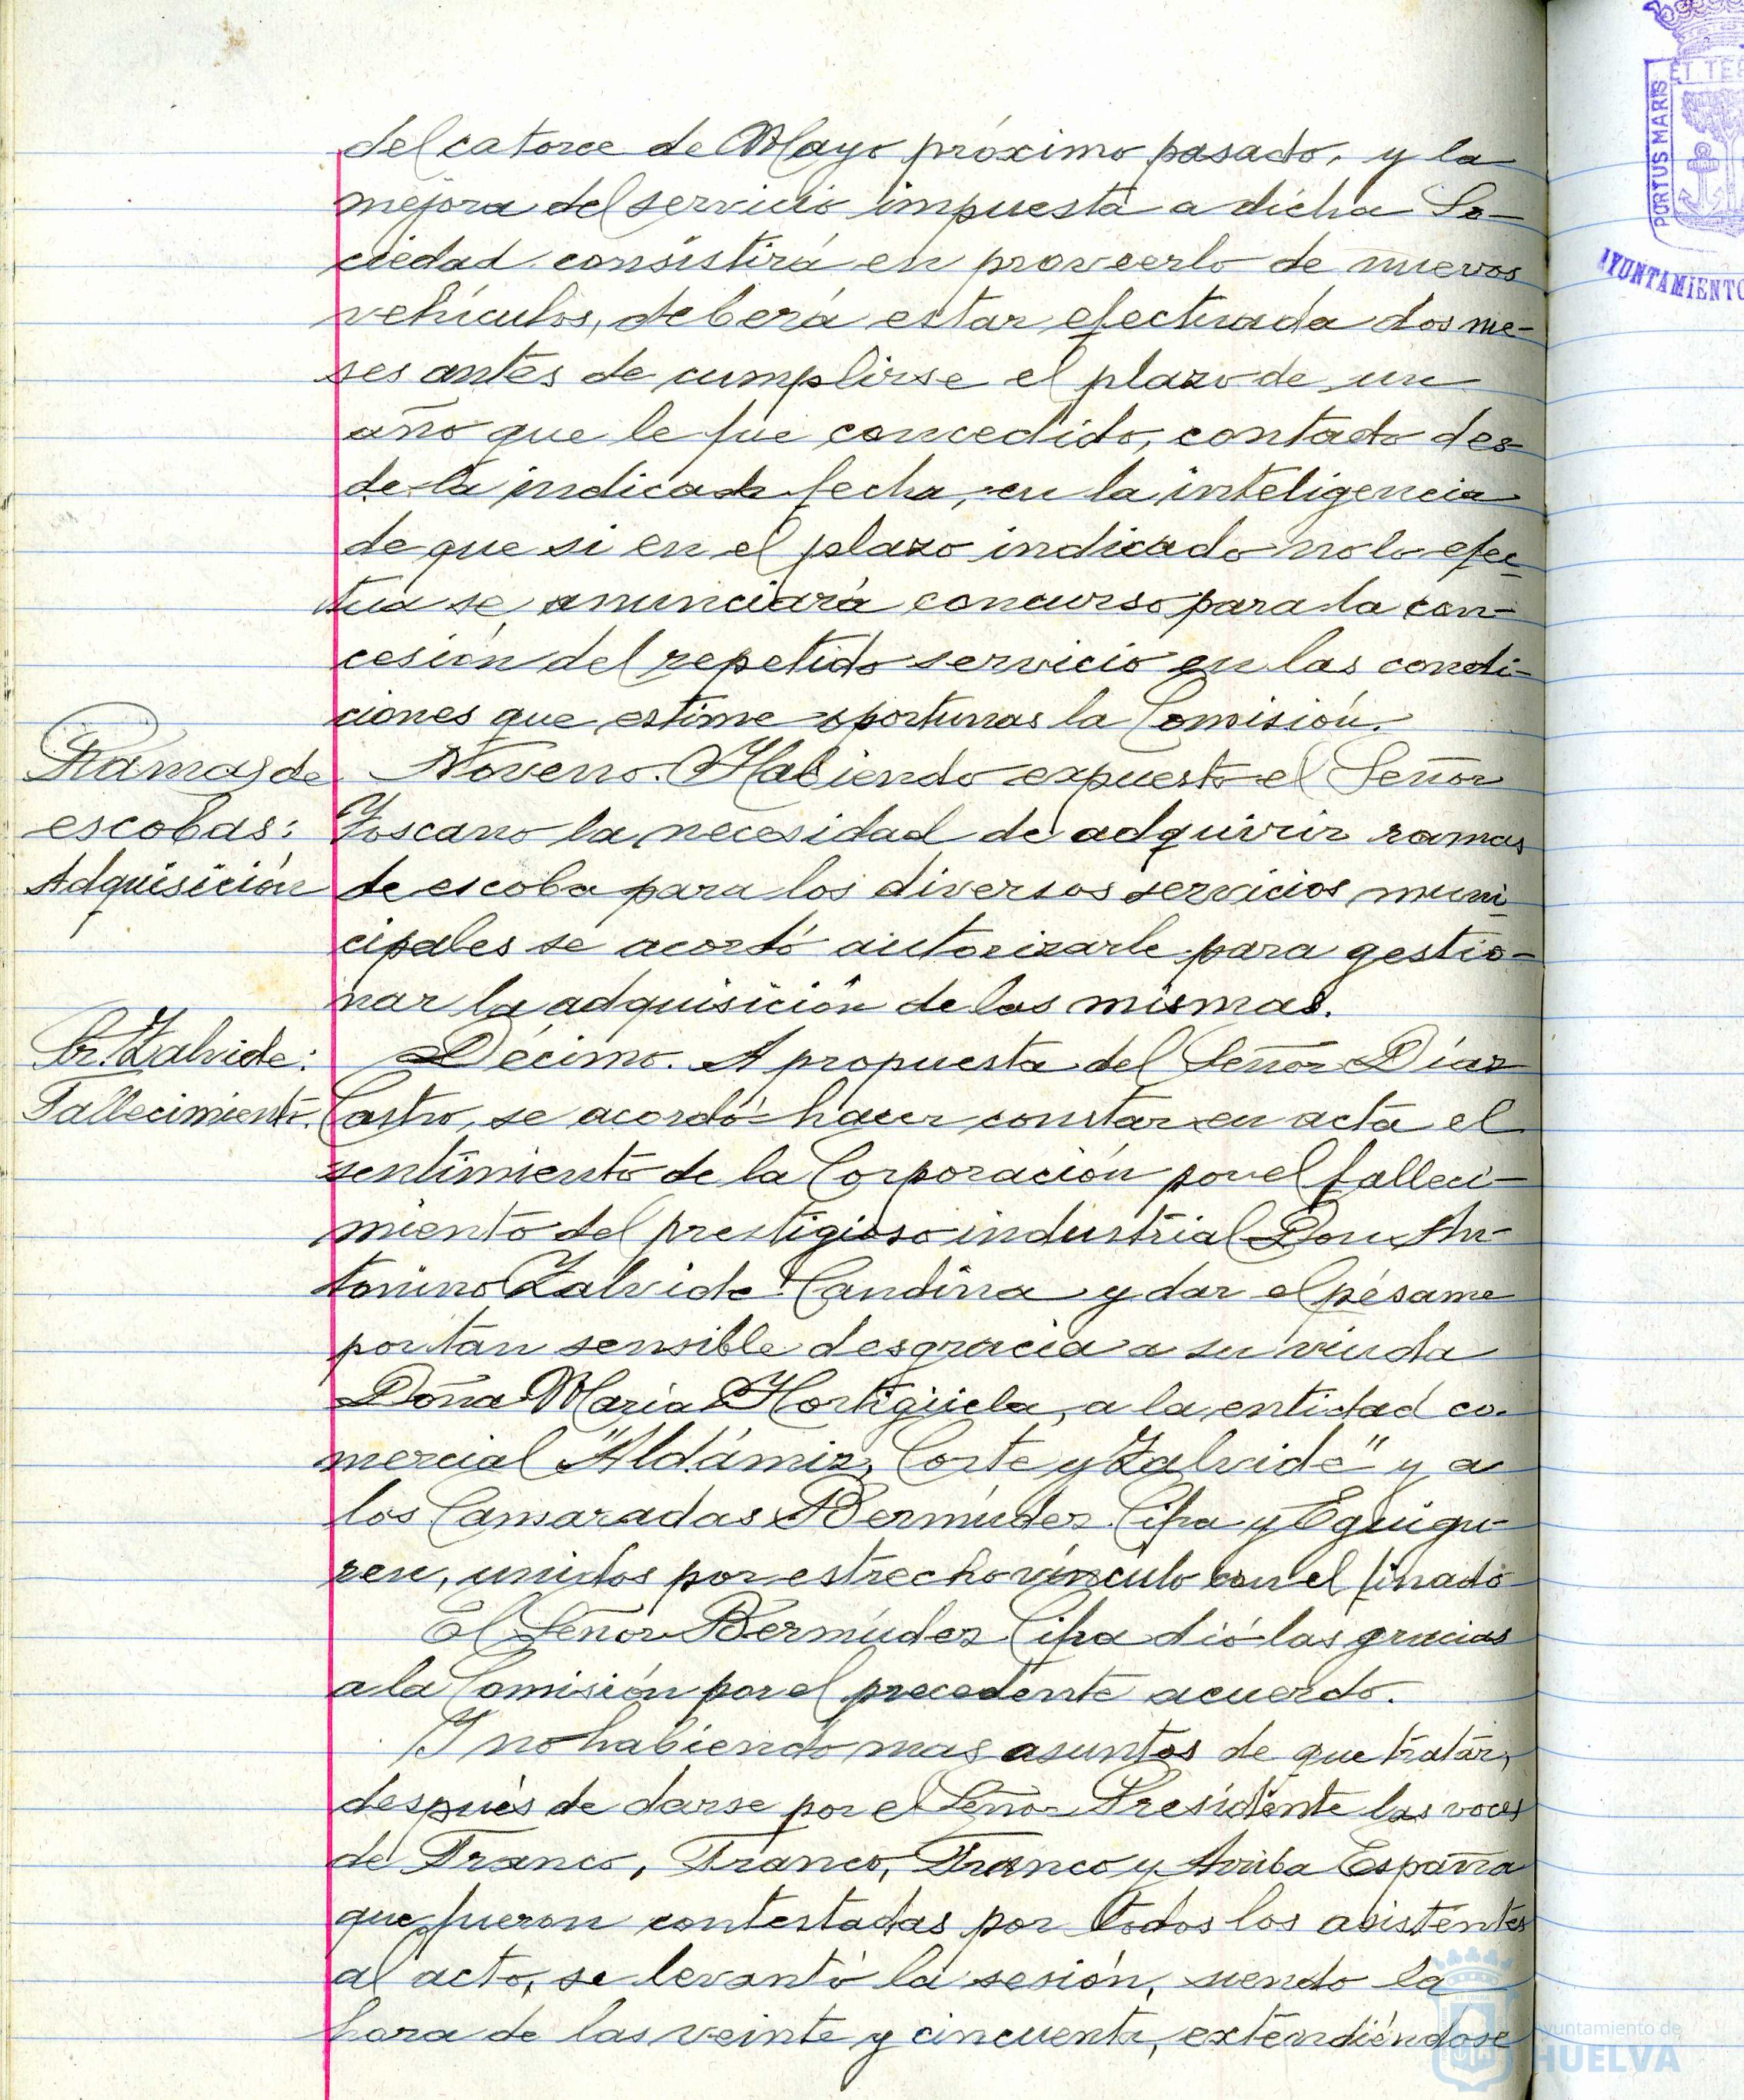 del catorce de Mayo próximo pasado, y la
mejora del servicio impuesta a dicha So-
ciedad consistirá en proveerlo de nuevos
vehículos, deberá estar efectuada dos me-
ses antes de cumplirse el plazo de un
año que le fue concedido, contado des-
de la indicada fecha, en la inteligencia
de que si en el plazo indicado no lo efec-
tua se anunciará concurso para la con-
cesión del repetido servicio en las condi-
ciones que estime oportunas la Comisión.
Ramas de
escobas:
Adquisición
Noveno. Habiendo expuesto el Señor
Toscano la necesidad de adquirir ramas
de escoba para los diversos servicios muni-
cipales se acordó autorizarle para gestio-
nar la adquisición de las mismas.
Sr. Zalvide:
Fallecimiento.
Décimo. A propuesta del Señor Díaz
Castro, se acordó hacer constar en acta el
sentimiento de la Corporación por el falleci-
miento del prestigioso industrial Don An-
tonino Zalvide Candina y dar el pésame
por tan sensible desgracia a su viuda
Doña María Hortigüela, a la entidad co-
mercial "Aldámiz, Corte y Zalvide" y a
los Camaradas Bermúdez Cifra y Eguigu-
ren, unidos por estrecho vínculo con el finado
El Señor Bermúdez Cifra dió las gracias
a la Comisión por el precedente acuerdo.
Y no habiendo mas asuntos de que tratar,
después de darse por el Señor Presidente las voces
de Franco, Franco, Franco y Arriba España
que fueron contestadas por todos los asistentes
al acto, se levantó la sesión, siendo la
hora de las veinte y cincuenta, extendiéndose
PORTUS MARIS
ET TER
AYUNTAMIENTO
Ayuntamiento de
HUELVA